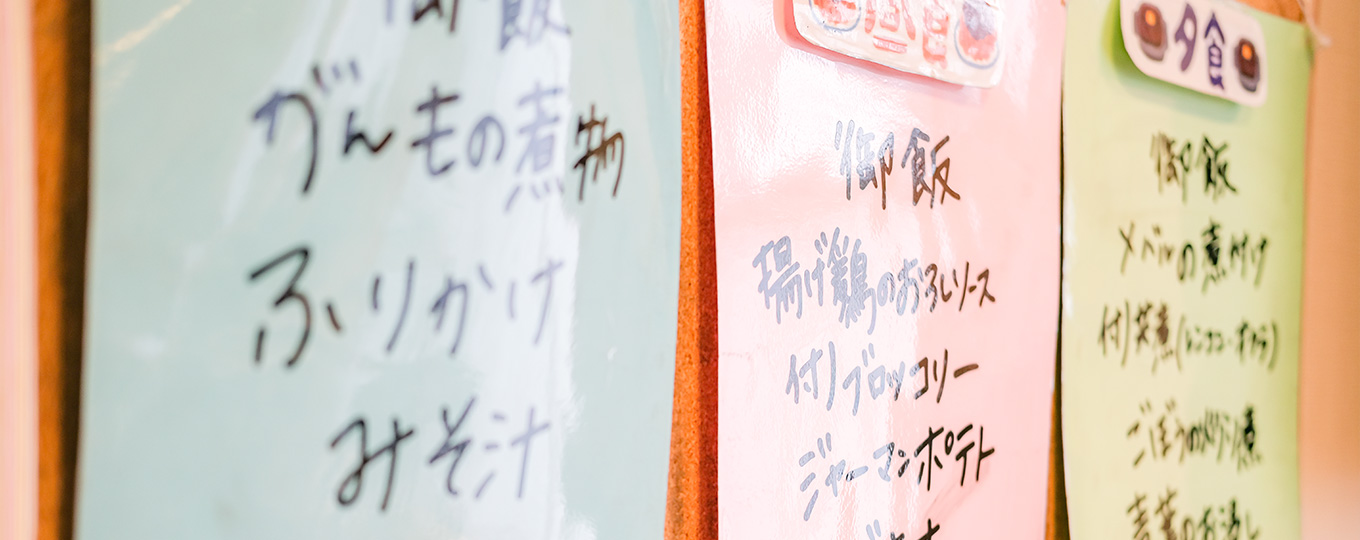 御飯
がんもの煮物
ふりかけ
みそ汁
御飯
揚げ鶏のおろしソース
付)ブロッコリー
ジャーマンポテト
夕食
御飯
メバルの煮付け
付)炊煮(レンコン・オクラ)
ごぼうの炒り煮
青菜のお浸し